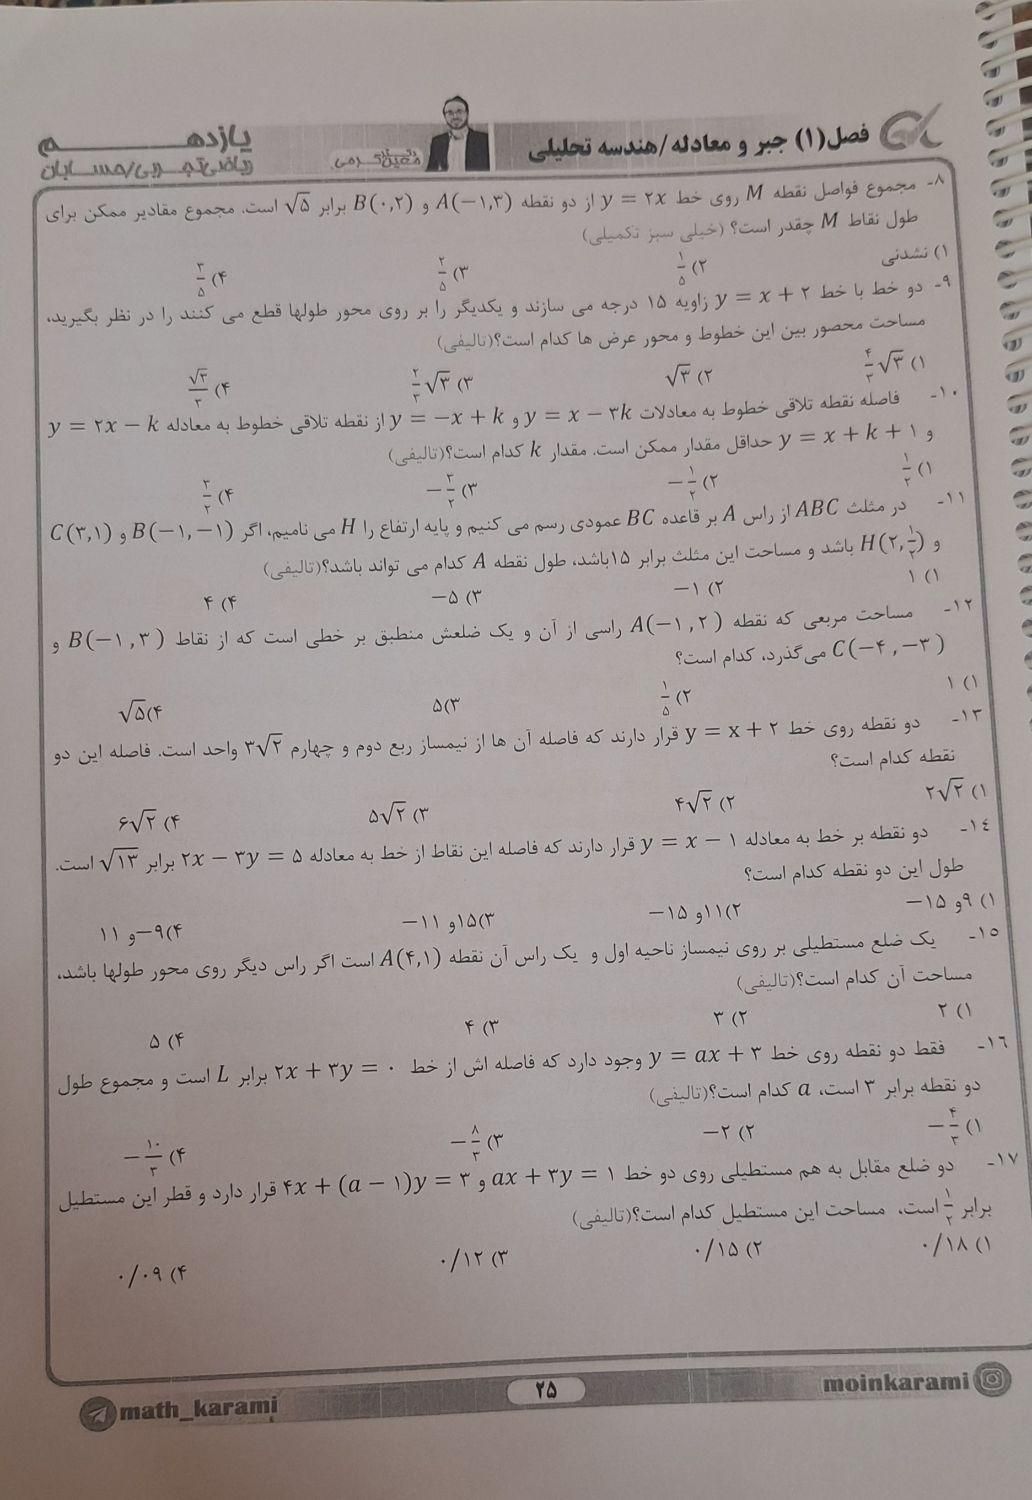 فصل(۱) جبر و معادله/هندسه تحلیلی
یازدهم
ریاضی/تجربی/حسابان
معین کرمی
۸- مجموع فواصل نقطه M روی خط y = ۲x از دو نقطه A(−۱,۳) و B(۰,۲) برابر √۵ است. مجموع مقادیر ممکن برای
طول نقاط M چقدر است؟ (خیلی سبز تکمیلی)
۱) نشدنی ۲) ۱/۵ ۳) ۲/۵ ۴) ۳/۵
۹- دو خط با خط y = x + ۲ زاویه ۱۵ درجه می سازند و یکدیگر را بر روی محور طولها قطع می کنند را در نظر بگیرید،
مساحت محصور بین این خطوط و محور عرض ها کدام است؟(تالیفی)
۱) ۴/۳√۳ ۲) √۳ ۳) ۲/۳√۳ ۴) √۳/۳
۱۰- فاصله نقطه تلاقی خطوط به معادلات y = x − ۳k و y = −x + k از نقطه تلاقی خطوط به معادله y = ۲x − k
و y = x + k + ۱ حداقل مقدار ممکن است. مقدار k کدام است؟(تالیفی)
۱) ۱/۲ ۲) −۱/۲ ۳) −۳/۲ ۴) ۳/۲
۱۱- در مثلث ABC از راس A بر قاعده BC عمودی رسم می کنیم و پایه ارتفاع را H می نامیم، اگر B(−۱,−۱) و C(۳,۱)
و H(۲,۱/۲) باشد و مساحت این مثلث برابر ۱۵باشد، طول نقطه A کدام می تواند باشد؟(تالیفی)
۱) ۱ ۲) −۱ ۳) −۵ ۴) ۴
۱۲- مساحت مربعی که نقطه A(−۱,۲) راسی از آن و یک ضلعش منطبق بر خطی است که از نقاط B(−۱,۳) و
C(−۴,−۳) می‌گذرد، کدام است؟
۱) ۱ ۲) ۱/۵ ۳)۵ ۴)√۵
۱۳- دو نقطه روی خط y = x + ۲ قرار دارند که فاصله آن ها از نیمساز ربع دوم و چهارم ۳√۲ واحد است. فاصله این دو
نقطه کدام است؟
۱) ۲√۲ ۲) ۴√۲ ۳) ۵√۲ ۴) ۶√۲
۱۴- دو نقطه بر خط به معادله y = x − ۱ قرار دارند که فاصله این نقاط از خط به معادله ۲x − ۳y = ۵ برابر √۱۳ است.
طول این دو نقطه کدام است؟
۱) ۹و ۱۵− ۲)۱۱و ۱۵− ۳)۱۵و ۱۱− ۴)۹−و ۱۱
۱۵- یک ضلع مستطیلی بر روی نیمساز ناحیه اول و یک راس آن نقطه A(۴,۱) است اگر راس دیگر روی محور طولها باشد،
مساحت آن کدام است؟(تالیفی)
۱) ۲ ۲) ۳ ۳) ۴ ۴) ۵
۱۶- فقط دو نقطه روی خط y = ax + ۳ وجود دارد که فاصله اش از خط ۲x + ۳y = ۰ برابر L است و مجموع طول
دو نقطه برابر ۳ است، a کدام است؟(تالیفی)
۱) −۴/۳ ۲) −۲ ۳) −۸/۳ ۴) −۱۰/۳
۱۷- دو ضلع مقابل به هم مستطیلی روی دو خط ax + ۳y = ۱ و ۴x + (a − ۱)y = ۳ قرار دارد و قطر این مستطیل
برابر ۱/۲ است، مساحت این مستطیل کدام است؟(تالیفی)
۱) ۰/۱۸ ۲) ۰/۱۵ ۳) ۰/۱۲ ۴) ۰/۰۹
moinkarami
۲۵
math_karami